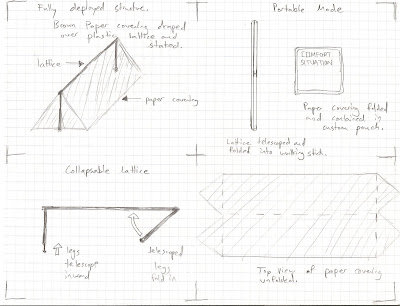 Fully deployed structure.
Brown Paper covering draped
over plastic lattice and
staked.
lattice
paper covering
Portable Mode
COMFORT
SITUATION
Paper covering folded
and contained in
custom pouch.
Lattice telescoped and
folded into walking stick.
Collapsable lattice.
legs
telescope
inward
telescoped
legs
fold in
Top view of paper covering
unfolded.